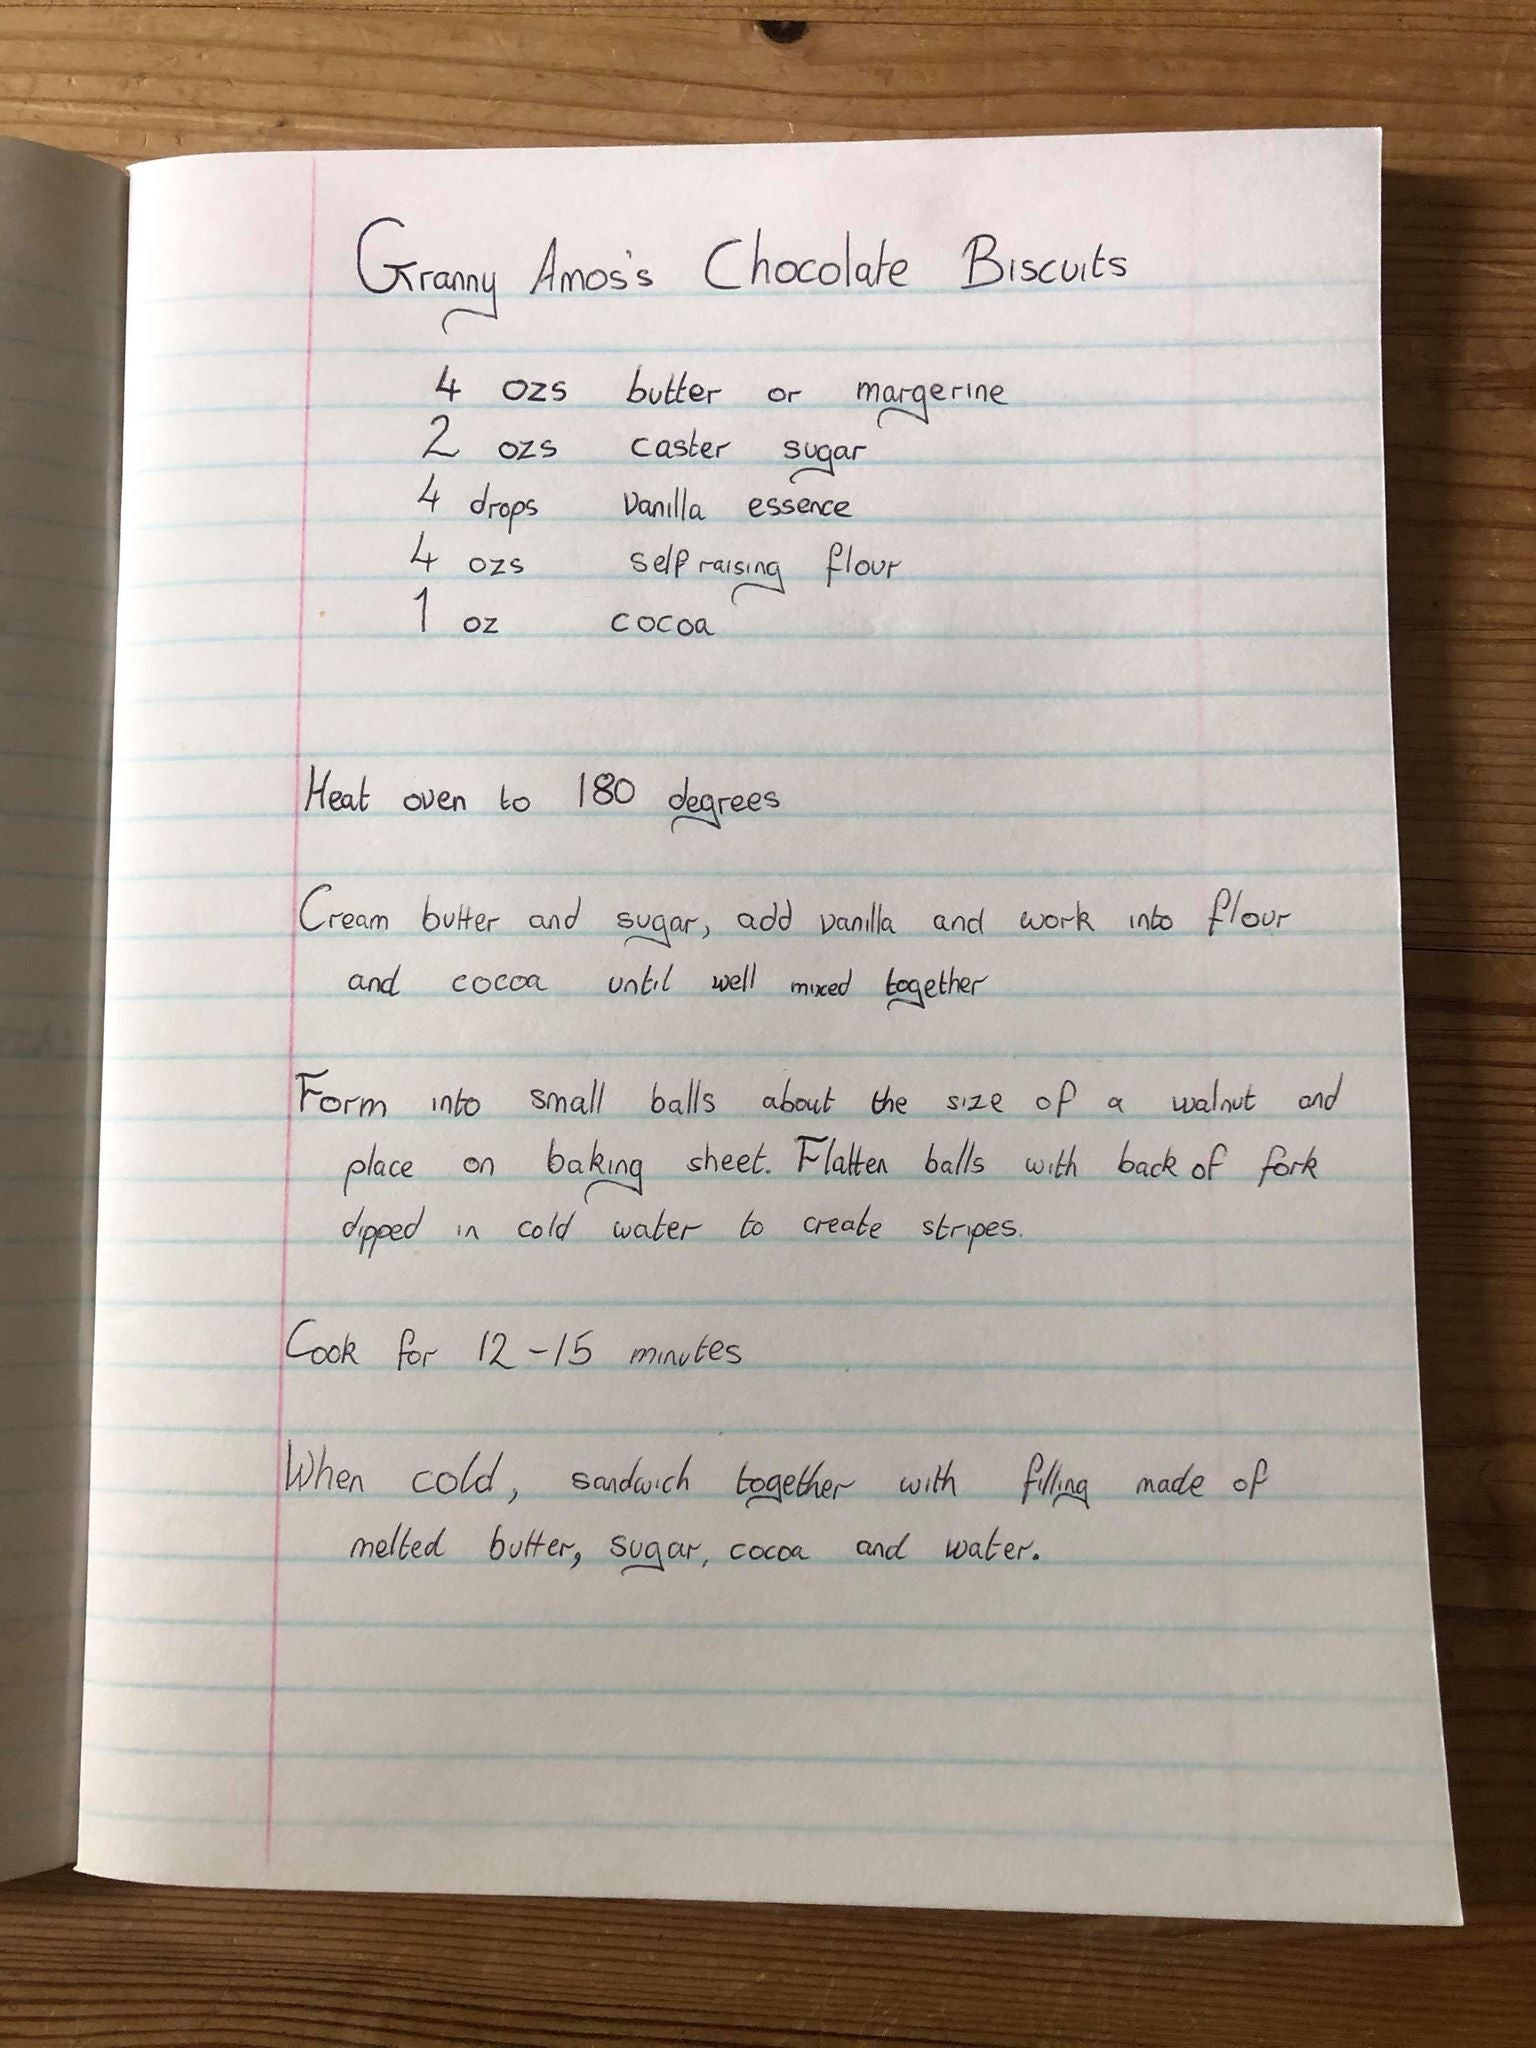 Granny Amos's Chocolate Biscuits
4 ozs butter or margerine
2 ozs caster sugar
4 drops vanilla essence
4 ozs self raising flour
1 oz cocoa
Heat oven to 180 degrees
Cream butter and sugar, add vanilla and work into flour
and cocoa until well mixed together
Form into small balls about the size of a walnut and
place on baking sheet. Flatten balls with back of fork
dipped in cold water to create stripes.
Cook for 12-15 minutes
When cold, sandwich together with filling made of
melted butter, sugar, cocoa and water.